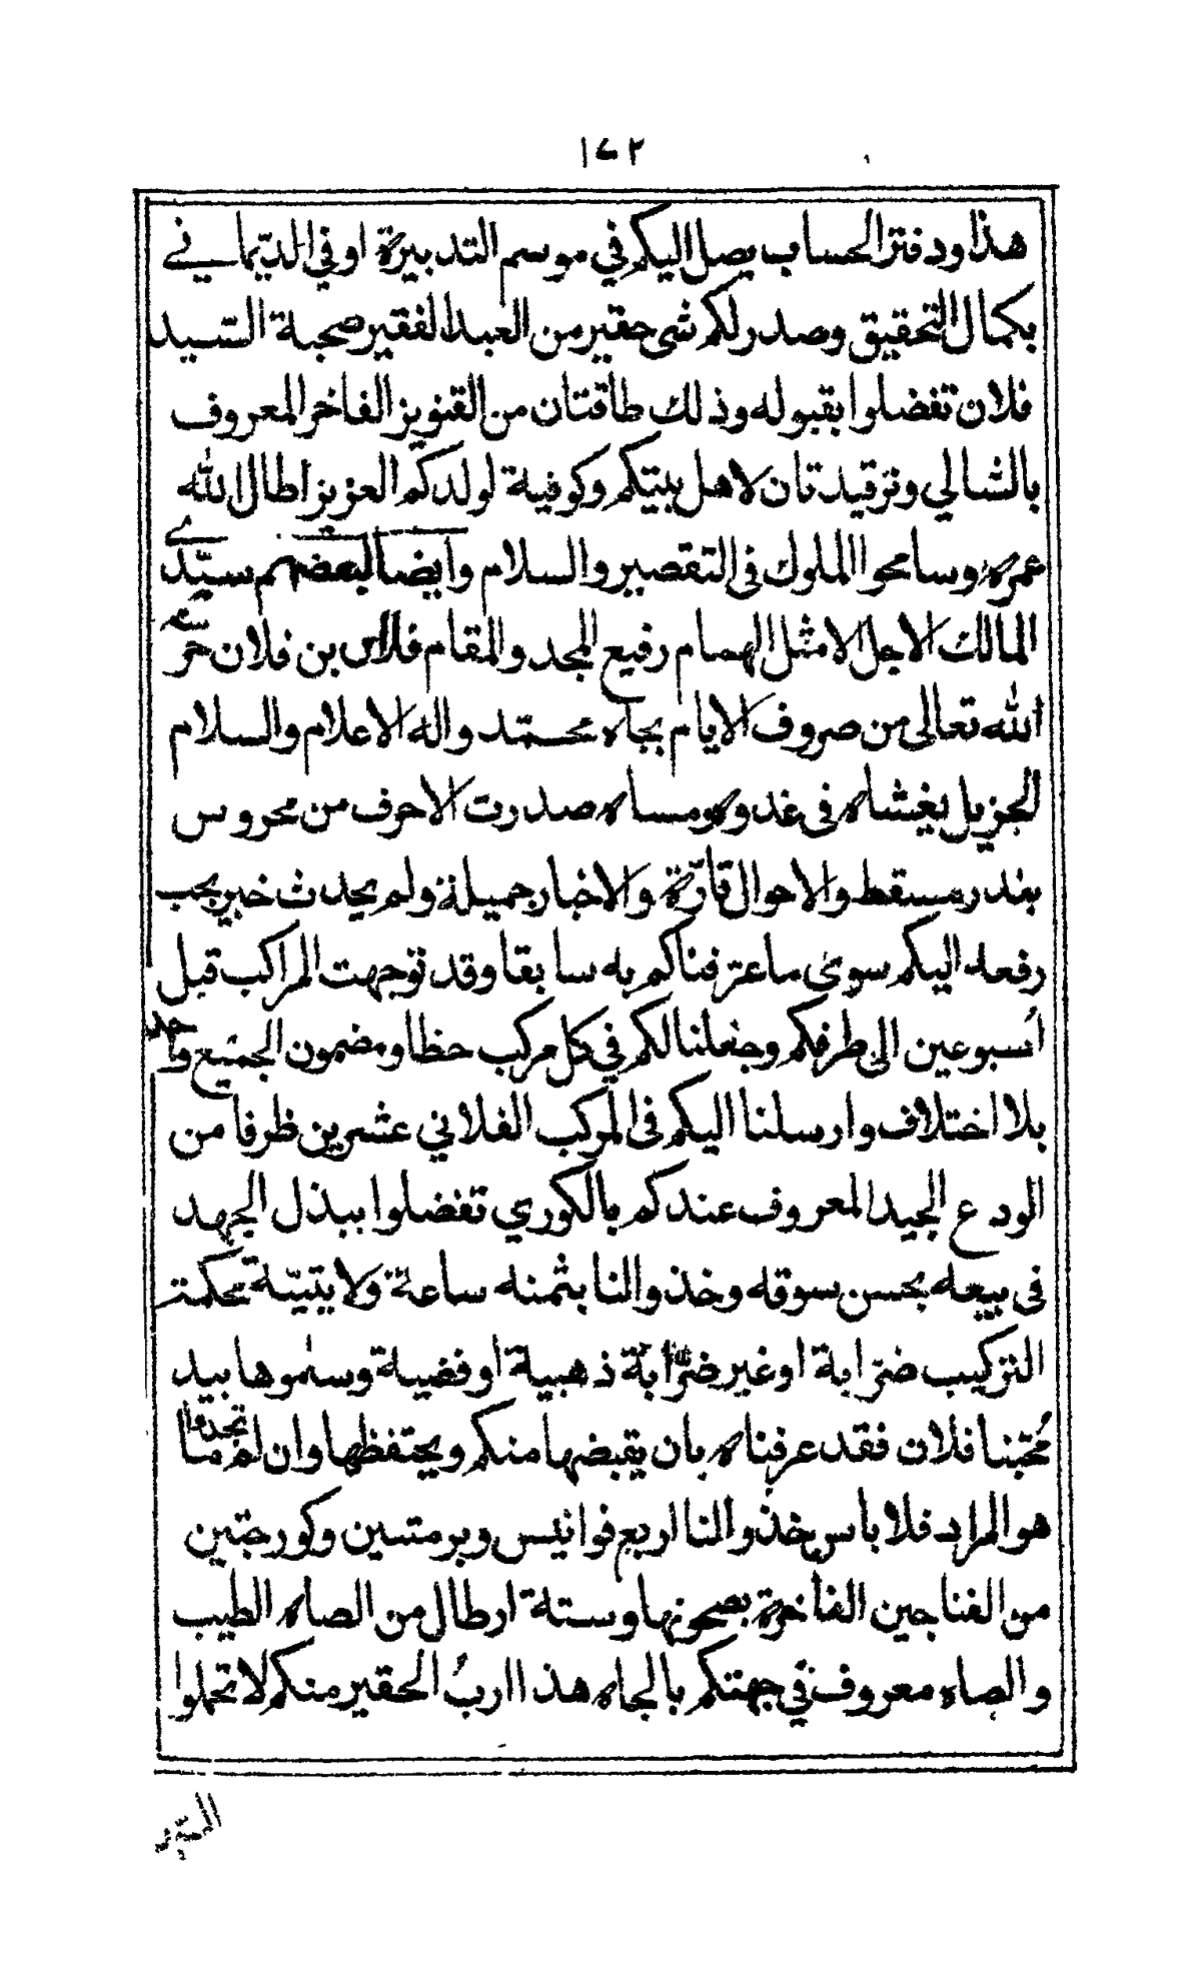 ١٧٢
هذا ودفتر الحساب يصل اليكم في موسم التدبيرة او في الديماني
بكمال التحقيق وصدر لكم شي حقير من العبد الفقير صحبة السّيد
فلان تفضلوا بقبوله وذلك طاقتان من القنويز الفاخر المعروف
بالشالي وترقيدتان لاهل بيتكم وكوفية لولدكم العزيز اطال الله
عمره وسامحوا المملوك في التقصير والسلام وايضا لبعضهم سيّدي
المالك الاجل الامثل الهمام رفيع المجد والمقام فلان بن فلان حرسه
الله تعالى من صروف الايام بجاه محمّد واله الاعلام والسلام
الجزيل يغشاه في غدوه ومساه صدرت الاحرف من محروس
بندر مسقط والاحوال قارّة والاخبار جميلة ولم يحدث خبر يجب
رفعه اليكم سوى ما عرّفناكم به سابقا وقد توجهت المراكب قبل
أسبوعين الى طرفكم وجعلنا لكم في كل مركب خطا ومضمون الجميع واحد
بلا اختلاف وارسلنا اليكم في المركب الفلاني عشرين ظرفا من
الودع الجيد المعروف عندكم بالكوري تفضلوا ببذل الجهد
في بيعه بحسن سوقه وخذوا لنا بثمنه ساعة ولايتيّة محكمة
التركيب ضرّابة او غير ضرّابة ذهبية او فضية وسلموها بيد
محبّنا فلان فقد عرفناه بان يقبضها منكم ويحتفظها وان لم تجدوا ما
هو المراد فلا باس خذوا لنا اربع فوانيس وبرمتين وكورجتين
من الفناجين الفاخرة بصحونها وستة ارطال من الصاه الطيب
والصاه معروف في جهتكم بالجاه هذا ارب الحقير منكم لا تحملوا